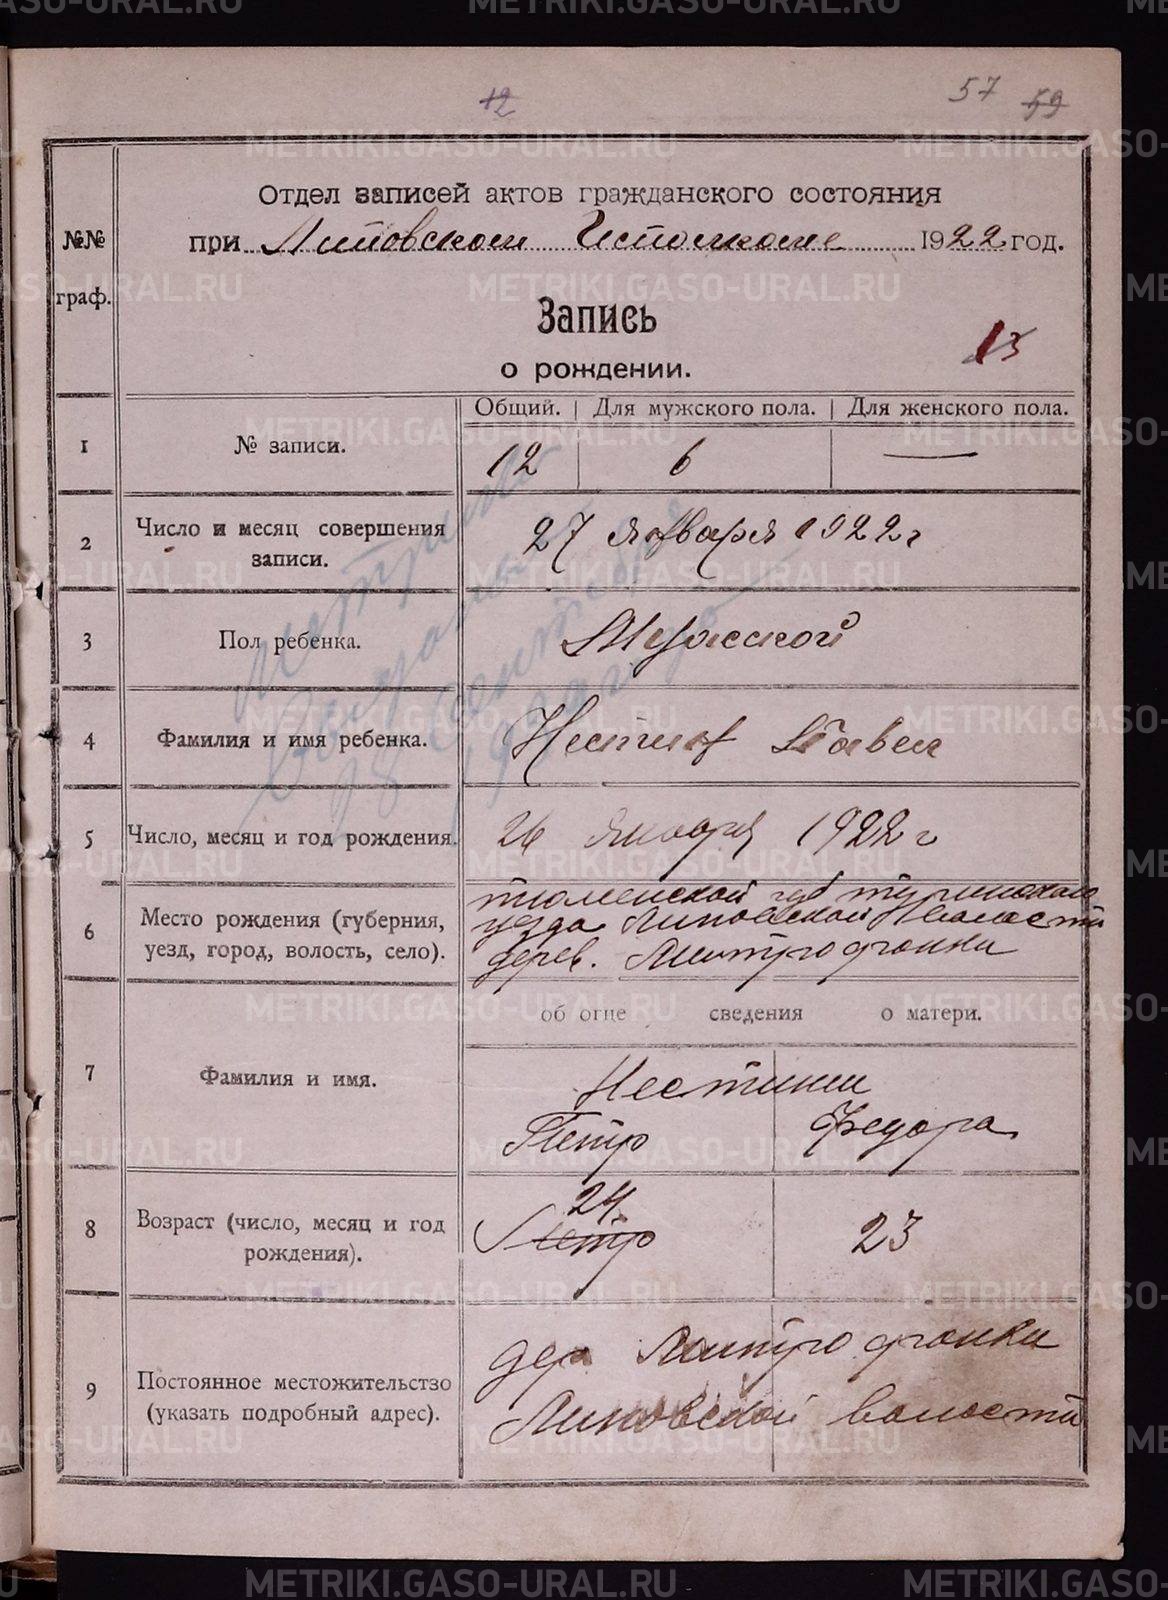 12
57 59
Отдел записей актов гражданского состояния
№№ граф.
при Липовском Исполкоме 1922 год.
Запись
о рождении.
13
Общий. Для мужского пола. Для женского пола.
1 № записи. 12 6 —
2 Число и месяц совершения записи. 27 января 1922 г
3 Пол ребенка. Мужской
4 Фамилия и имя ребенка. Павел
5 Число, месяц и год рождения. 26 января 1922 г
6 Место рождения (губерния, уезд, город, волость, село).
тюменской губ туринскаго
уезда Липовской Волости
дерев. Митрофонки
об отце сведения о матери.
7 Фамилия и имя.
Нестины
Петр Федора
8 Возраст (число, месяц и год рождения).
24 23
Петр
9 Постоянное местожительство (указать подробный адрес).
дер Митрофонки
Липовской волости
METRIKI.GASO-URAL.RU